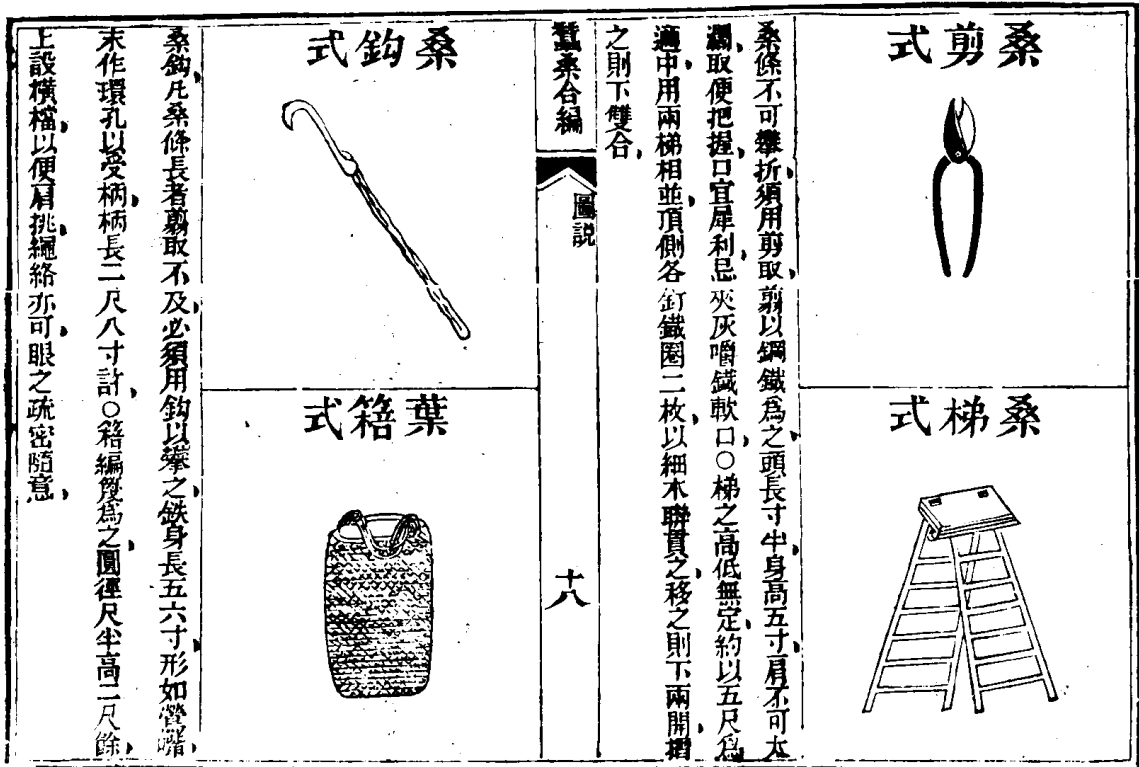 桑剪式
桑梯式
桑條不可攀折須用剪取剪以鋼鐵爲之頭長寸半身高五寸肩不可太
濶取便把握口宜犀利忌夾灰嚼鐵軟口○梯之高低無定約以五尺爲
適中用兩梯相並頂側各釘鐵圈二枚以細木聯貫之移之則下兩開摺
之則下雙合
蠶桑合編
圖説
十八
桑鈎式
葉䈞式
桑鈎凡桑條長者剪取不及必須用鈎以攀之鉄身長五六寸形如鶯嘴
末作環孔以受柄柄長二尺八寸許○䈞編篾爲之圓徑尺半高二尺餘
上設橫檔以便肩挑繩絡亦可眼之疏密隨意